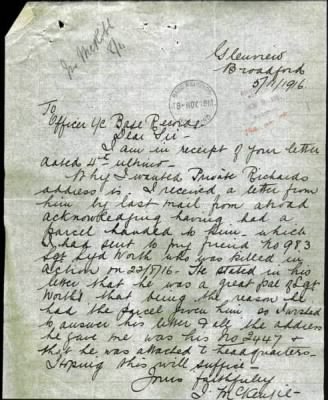 Glenview
Broadford
5/11/16.
8 - NOV 1916
To
Officer I/c Base Records
Dear Sir -
I am in receipt of your letter
dated 4th ultimo -
Why I wanted Private Richards
address is, I received a letter from
him by last mail from abroad
acknowledging having had a
parcel handed to him - which
I had sent to my friend No 983
Sgt Syd Worth who was killed in
action on 22/8/16 - He stated in his
letter that he was a great pal of Sgt
Worth's that being the reason he
had the parcel given him so I wished
to answer his letter & all the address
he gave me was his No 3447 &
that he was attached to headquarters -
Hoping this will suffice -
Yours faithfully
J. McKenzie -